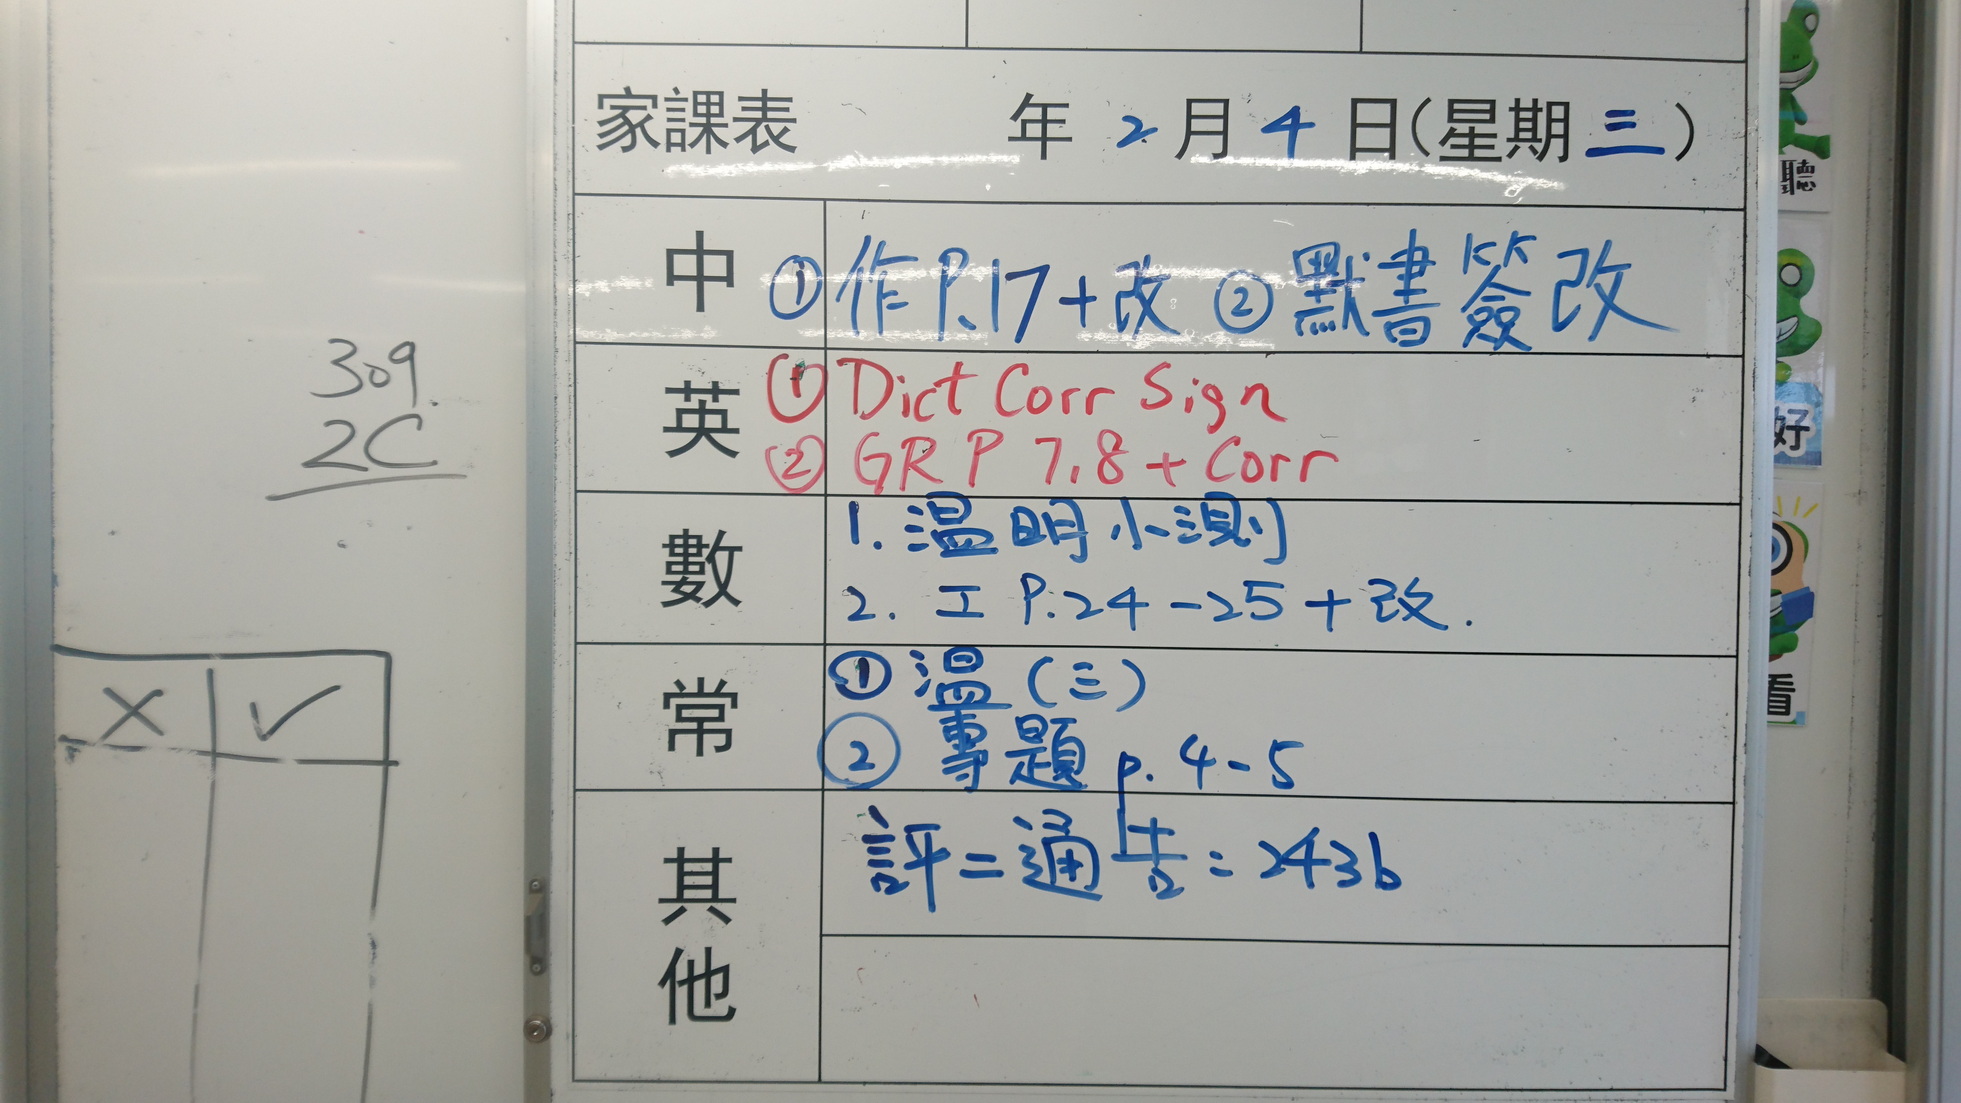 309
2C
家課表 年 2 月 4 日(星期三)
中 ① 作 P.17 + 改 ② 默書簽改
英 ① Dict Corr Sign
② GR P 7,8 + Corr
數 1. 溫明小測
2. 工 P.24-25 + 改.
常 ① 溫(三)
② 專題 p. 4-5
其他 評= 通告: 243b
聽
好
看